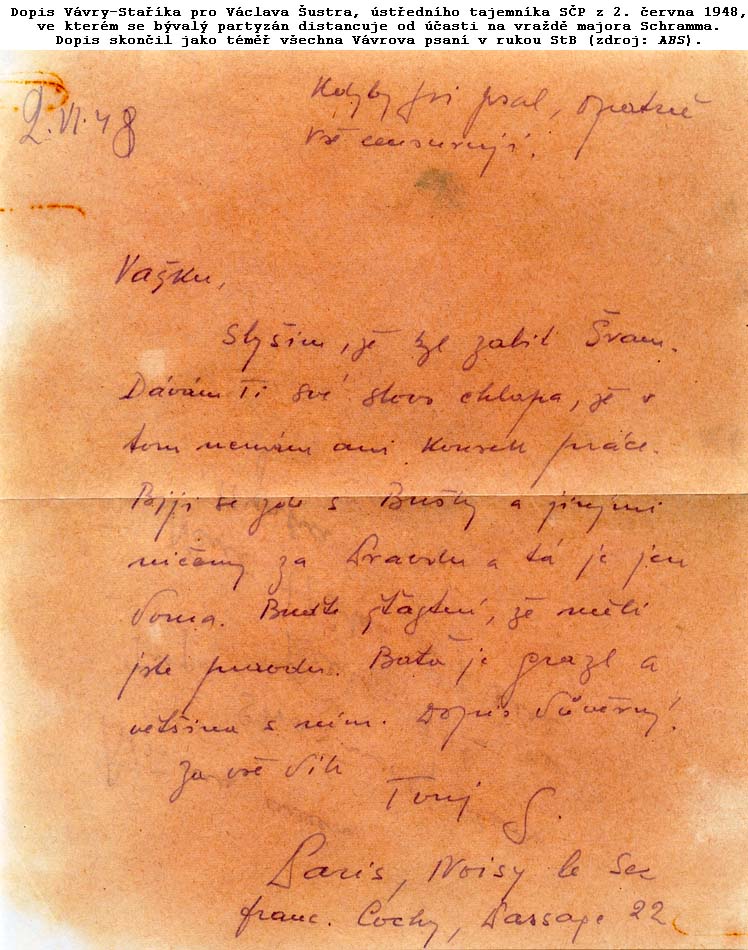 Dopis Vávry-Staříka pro Václava Šustra, ústředního tajemníka SČP z 2. června 1948,
ve kterém se bývalý partyzán distancuje od účasti na vraždě majora Schramma.
Dopis skončil jako téměř všechna Vávrova psaní v rukou StB (zdroj: ABS).
2. VI. 48
Kdyby jsi psal, opatrně
vše censurují!
Vašku,
Slyším, že byl zabit Šram.
Dávám Ti své slovo chlapa, že v
tom nemám ani kousek práce.
Biji se zde s Bušky a jinými
ničemy za Pravdu a tá je jen
doma. Buďte šťastni, že měli
jste pravdu. Baťa je grazl a
většina s ním. Dopis důvěrný!
Za vše dík
Tvůj S.
Paris, Noisy le Sec
franc. Cochy, Passage 22